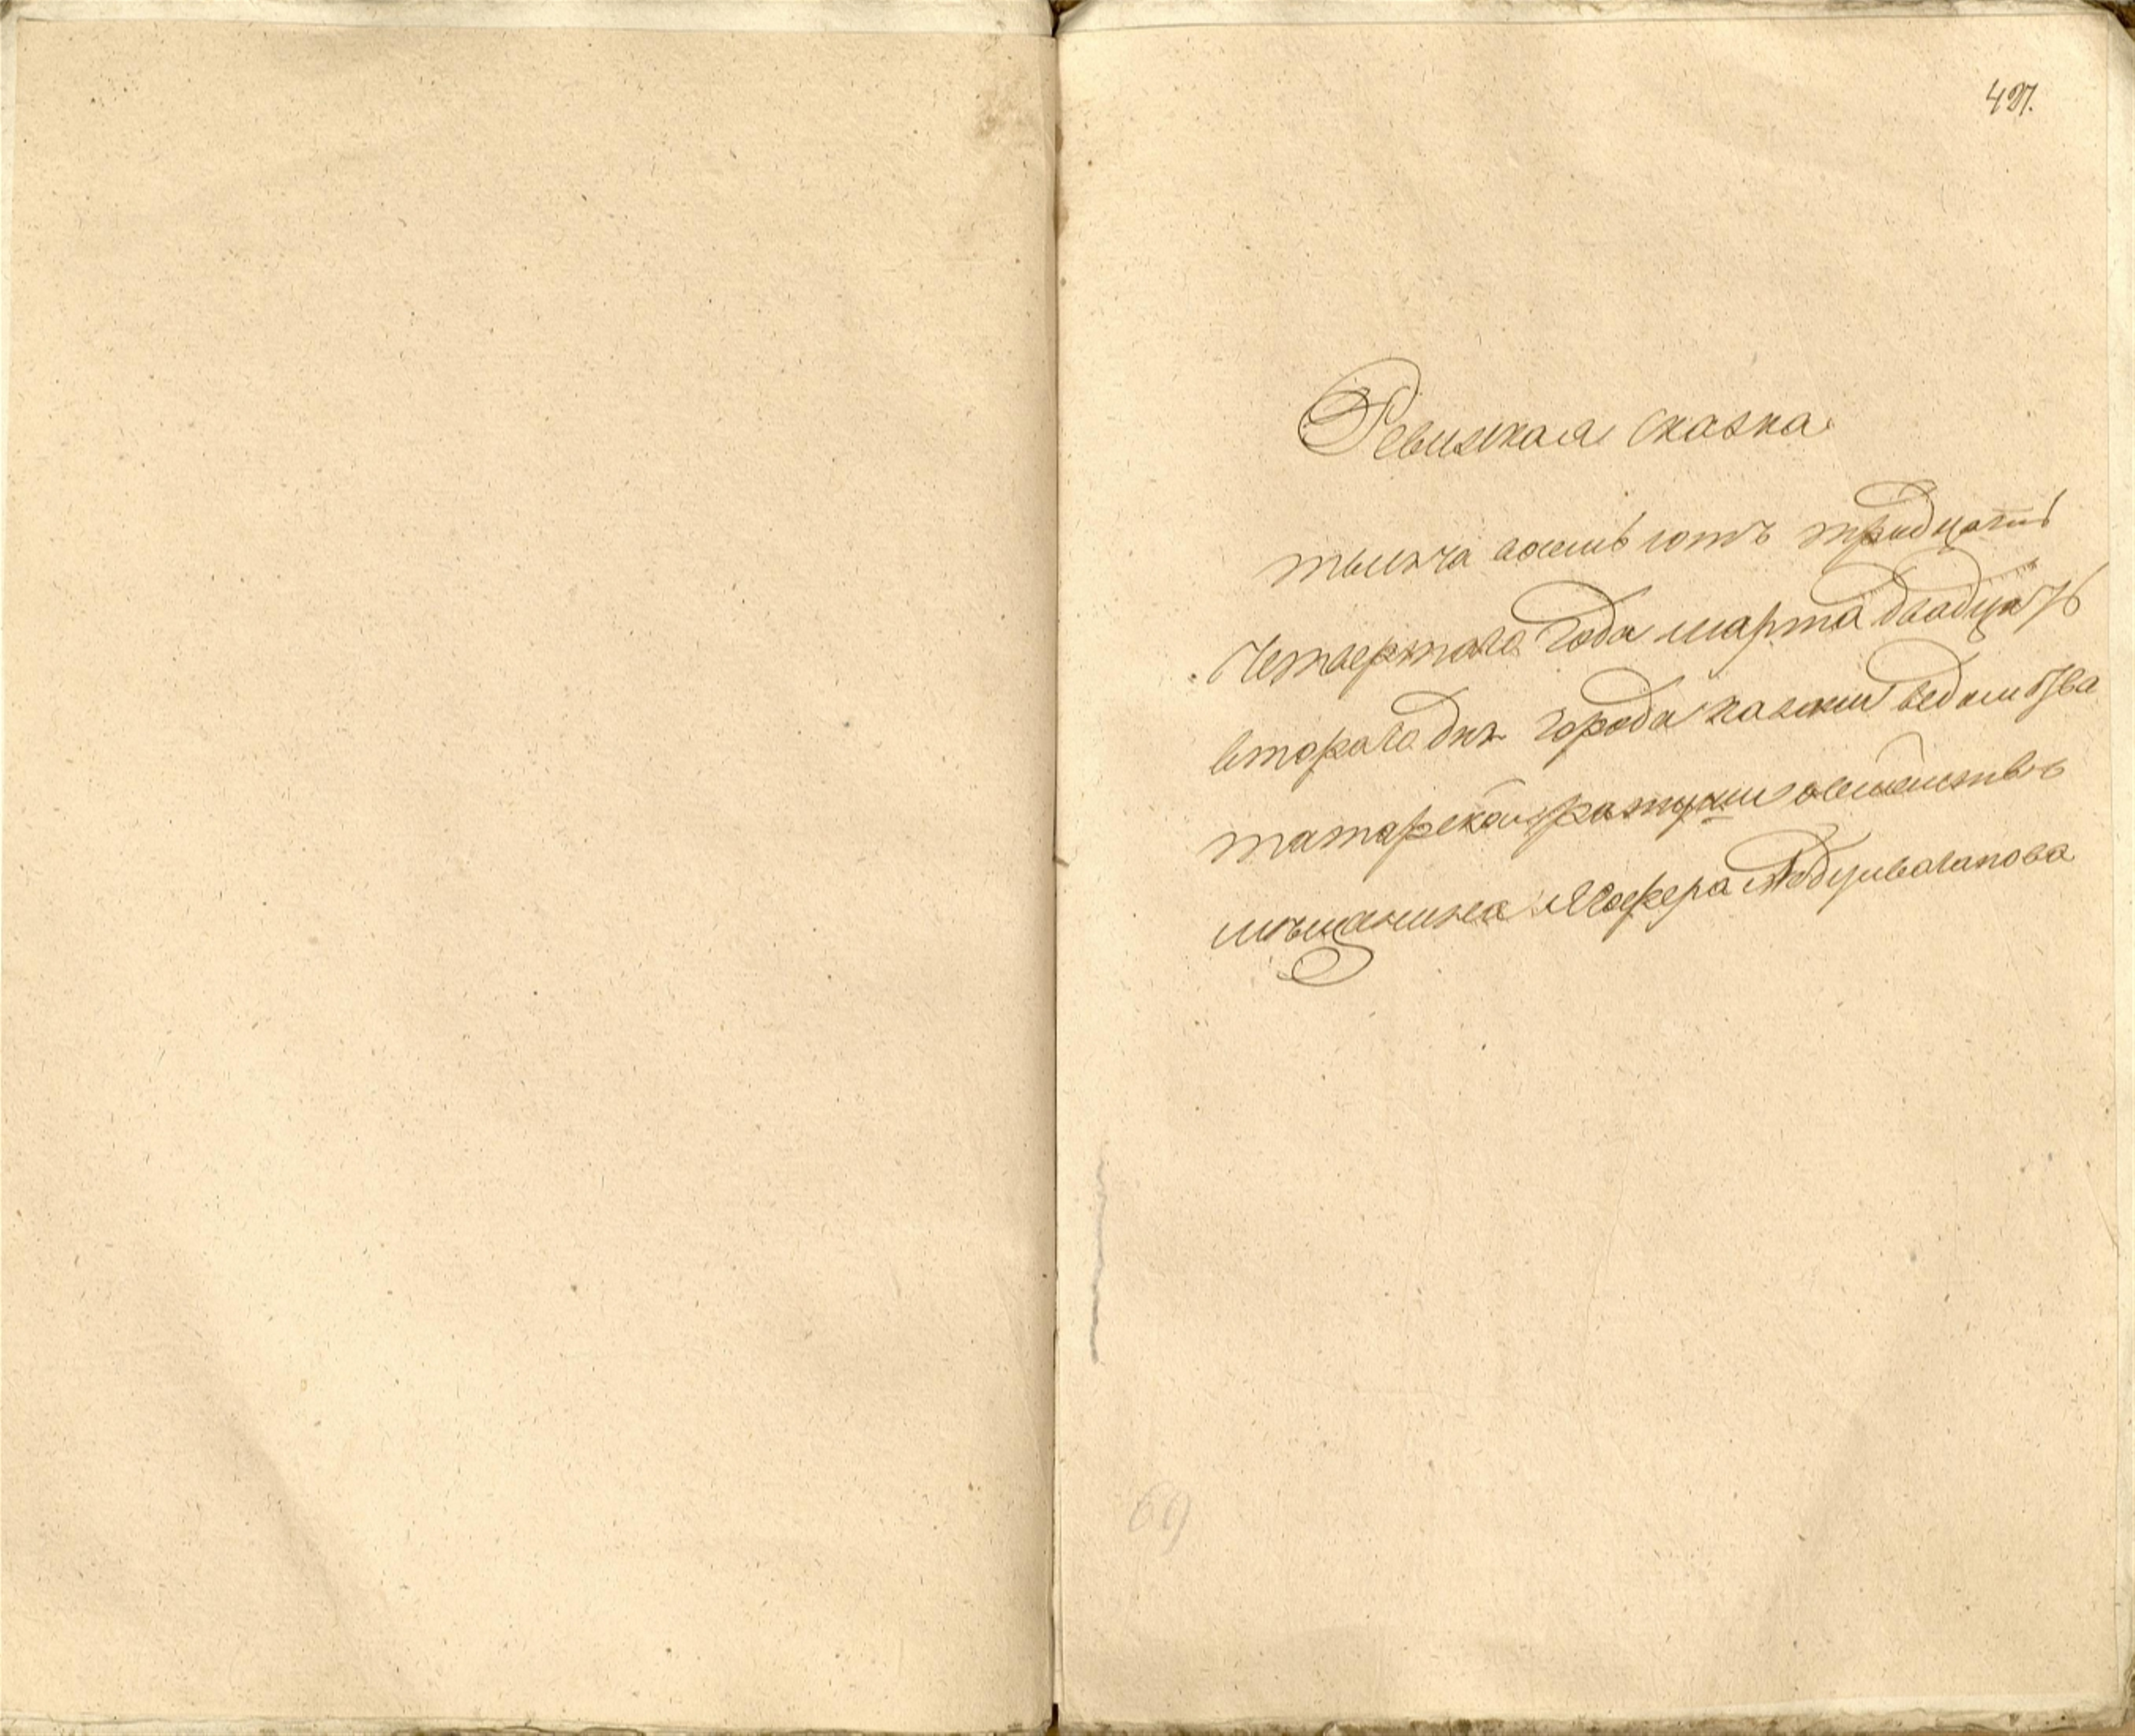 427.
Ревизкая сказка
тысяча восемь сотъ тридцать
четвертаго года марта двадцать
втораго дня города казани ведомства
татарской ратуши о семействе
мещанина Абдулвагапова
69